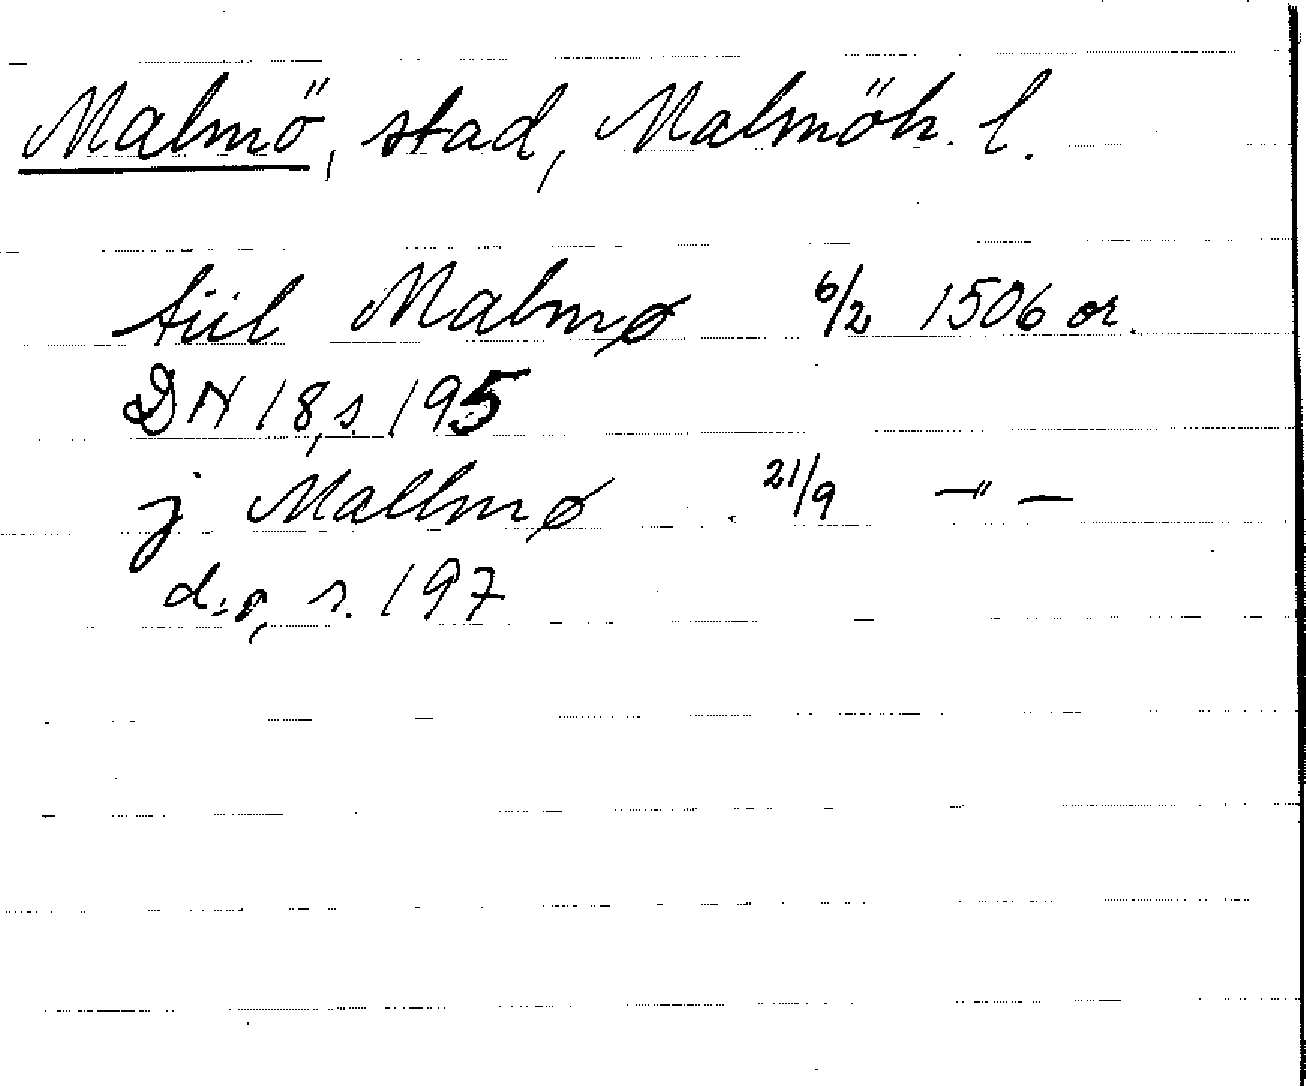 Malmö, stad, Malmöh. l.
tiil Malmø 6/2 1506 or.
DN 18, s. 195
j Mallmø 21/9 —"—
d:o, s. 197